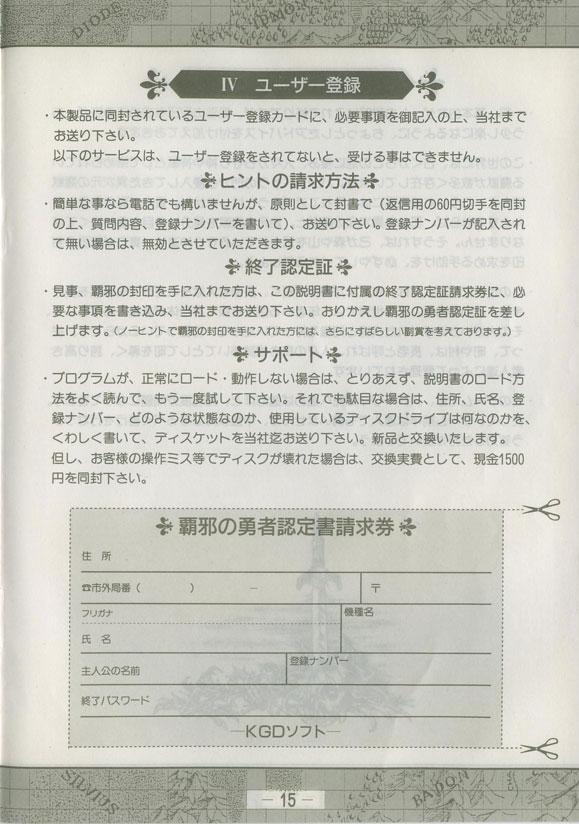 DIODE
BADON
IV ユーザー登録
・本製品に同封されているユーザー登録カードに、必要事項を御記入の上、当社まで
お送り下さい。
以下のサービスは、ユーザー登録をされてないと、受ける事はできません。
ヒントの請求方法
・簡単な事なら電話でも構いませんが、原則として封書で（返信用の60円切手を同封
の上、質問内容、登録ナンバーを書いて）、お送り下さい。登録ナンバーが記入され
て無い場合は、無効とさせていただきます。
終了認定証
・見事、覇邪の封印を手に入れた方は、この説明書に付属の終了認定証請求券に、必
要な事項を書き込み、当社までお送り下さい。おりかえし覇邪の勇者認定証を差し
上げます。（ノーヒントで覇邪の封印を手に入れた方には、さらにすばらしい副賞を考えております。）
サポート
・プログラムが、正常にロード・動作しない場合は、とりあえず、説明書のロード方
法をよく読んで、もう一度試して下さい。それでも駄目な場合は、住所、氏名、登
録ナンバー、どのような状態なのか、使用しているディスクドライブは何なのかを、
くわしく書いて、ディスケットを当社迄お送り下さい。新品と交換いたします。
但し、お客様の操作ミス等でディスクが壊れた場合は、交換実費として、現金1500
円を同封下さい。
覇邪の勇者認定書請求券
住 所
☎市外局番（ ） － 〒
フリガナ 機種名
氏 名
主人公の名前 登録ナンバー
終了パスワード
―KGDソフト―
SILVIUS
BADON
― 15 ―